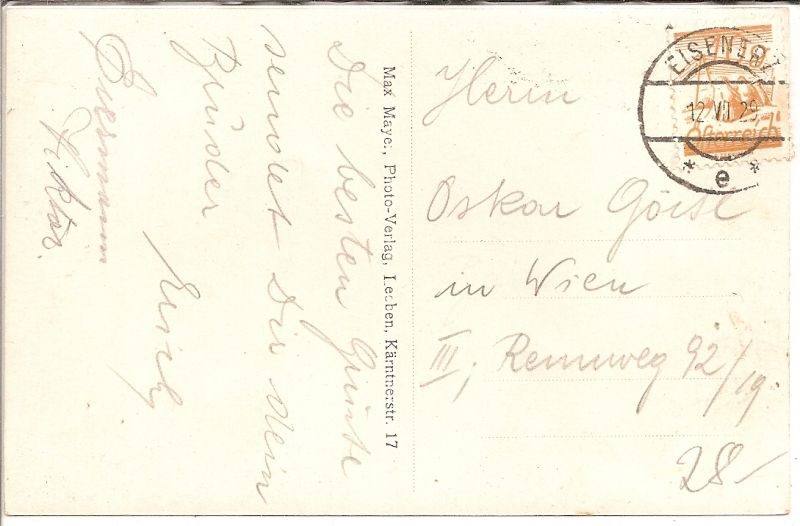 Die besten Grüße
sendet Dir dein
Bruder
Erich
Viktor
Max Mayer, Photo-Verlag, Leoben, Kärntnerstr. 17
EISENERZ
12 VII 29
* e *
Österreich
Herrn
Oskar
in Wien
III, Rennweg 92/19
28-